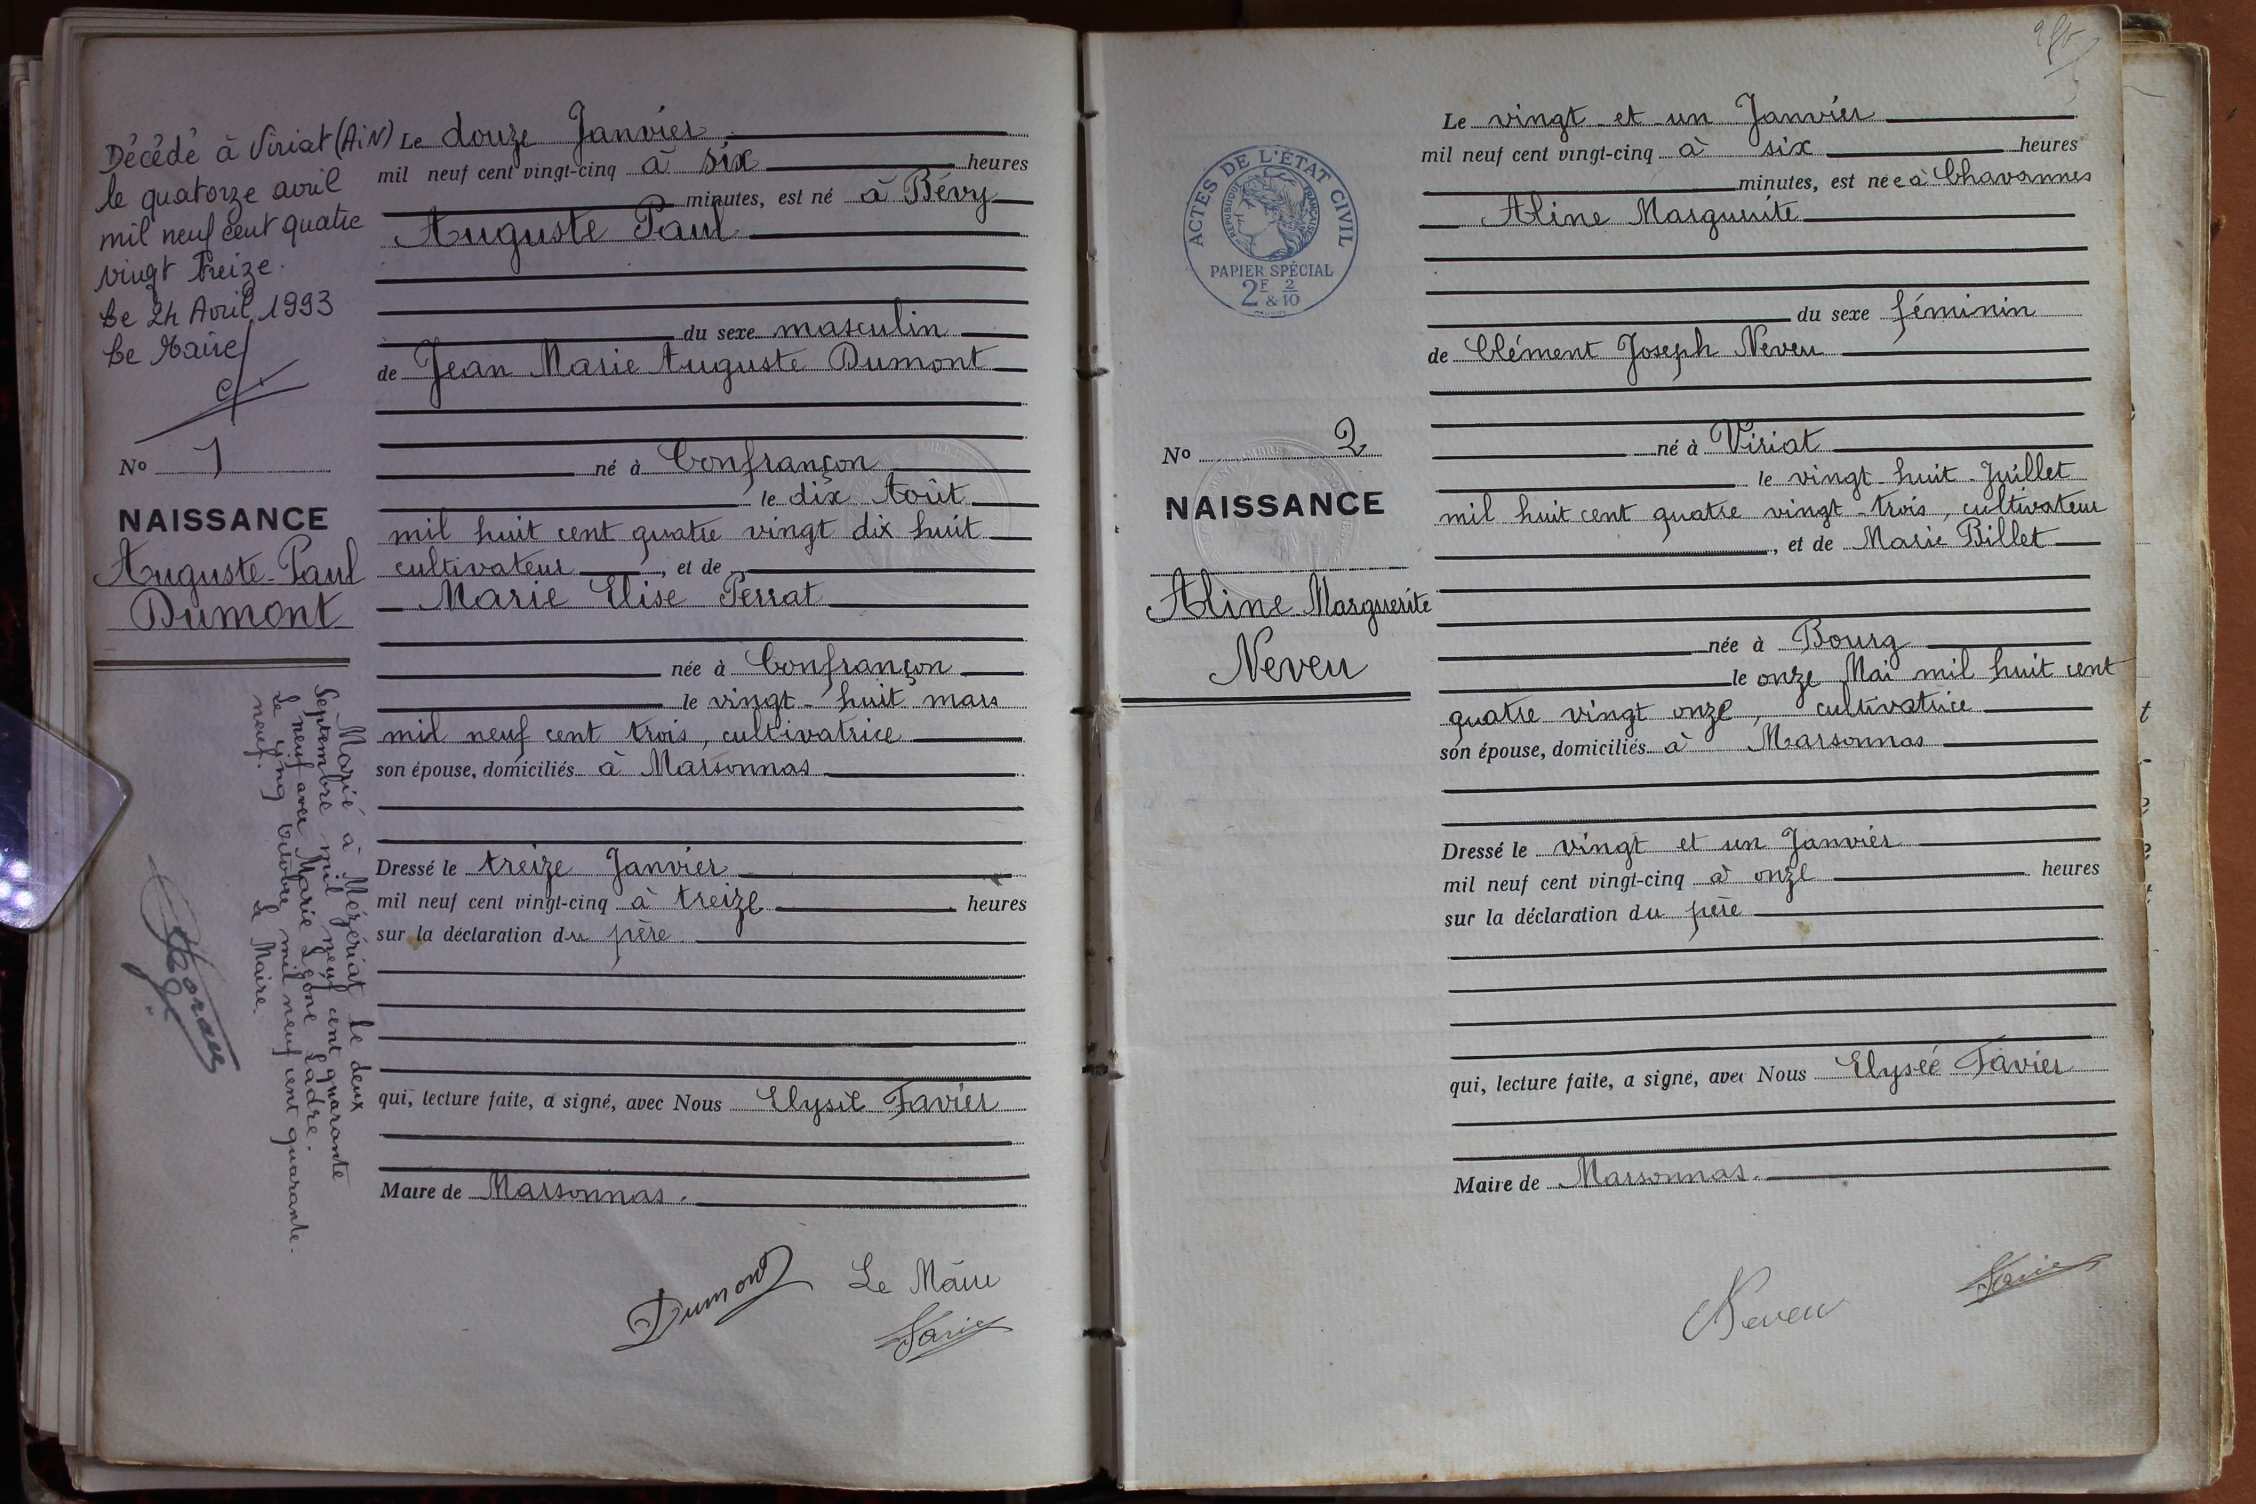 Décédé à Viriat (AiN)
le quatorze avril
mil neuf cent quatre
vingt treize.
Le 24 Avril 1993
Le Maire
No 1
NAISSANCE
Auguste-Paul
Dumont
Marié à Mézériat le deux
Septembre mil neuf cent quarante
neuf avec Marie Léone Ladre.
Le cinq Octobre mil neuf cent quarante-
neuf. Le Maire.
Le douze Janvier
mil neuf cent vingt-cinq à six heures
minutes, est né à Bévy
Auguste Paul
du sexe masculin
de Jean Marie Auguste Dumont
né à Confrançon
le dix Août
mil huit cent quatre vingt dix huit
cultivateur, et de
Marie Elise Perrat
née à Confrançon
le vingt-huit mars
mil neuf cent trois, cultivatrice
son épouse, domiciliés à Marsonnas
Dressé le treize Janvier
mil neuf cent vingt-cinq à treize heures
sur la déclaration du père
qui, lecture faite, a signé, avec Nous Elysée Favier
Maire de Marsonnas.
Dumont Le Maire
Favier
ACTES DE L'ÉTAT CIVIL
REPUBLIQUE FRANÇAISE
PAPIER SPÉCIAL
2F & 2/10
No 2
NAISSANCE
Aline Marguerite
Neveu
Le vingt et un Janvier
mil neuf cent vingt-cinq à six heures
minutes, est née à Chavannes
Aline Marguerite
du sexe féminin
de Clément Joseph Neveu
né à Viriat
le vingt-huit-Juillet
mil huit cent quatre vingt-trois, cultivateur
, et de Marie Billet
née à Bourg
le onze Mai mil huit cent
quatre vingt onze, cultivatrice
son épouse, domiciliés à Marsonnas
Dressé le vingt et un Janvier
mil neuf cent vingt-cinq à onze heures
sur la déclaration du père
qui, lecture faite, a signé, avec Nous Elyséé Favier
Maire de Marsonnas.
Neveu Favier